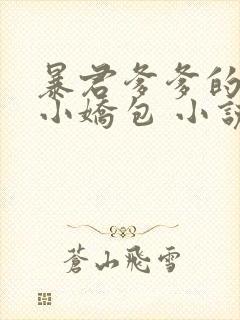 暴君爹爹的
小嬌包 小說
蒼山飛雪